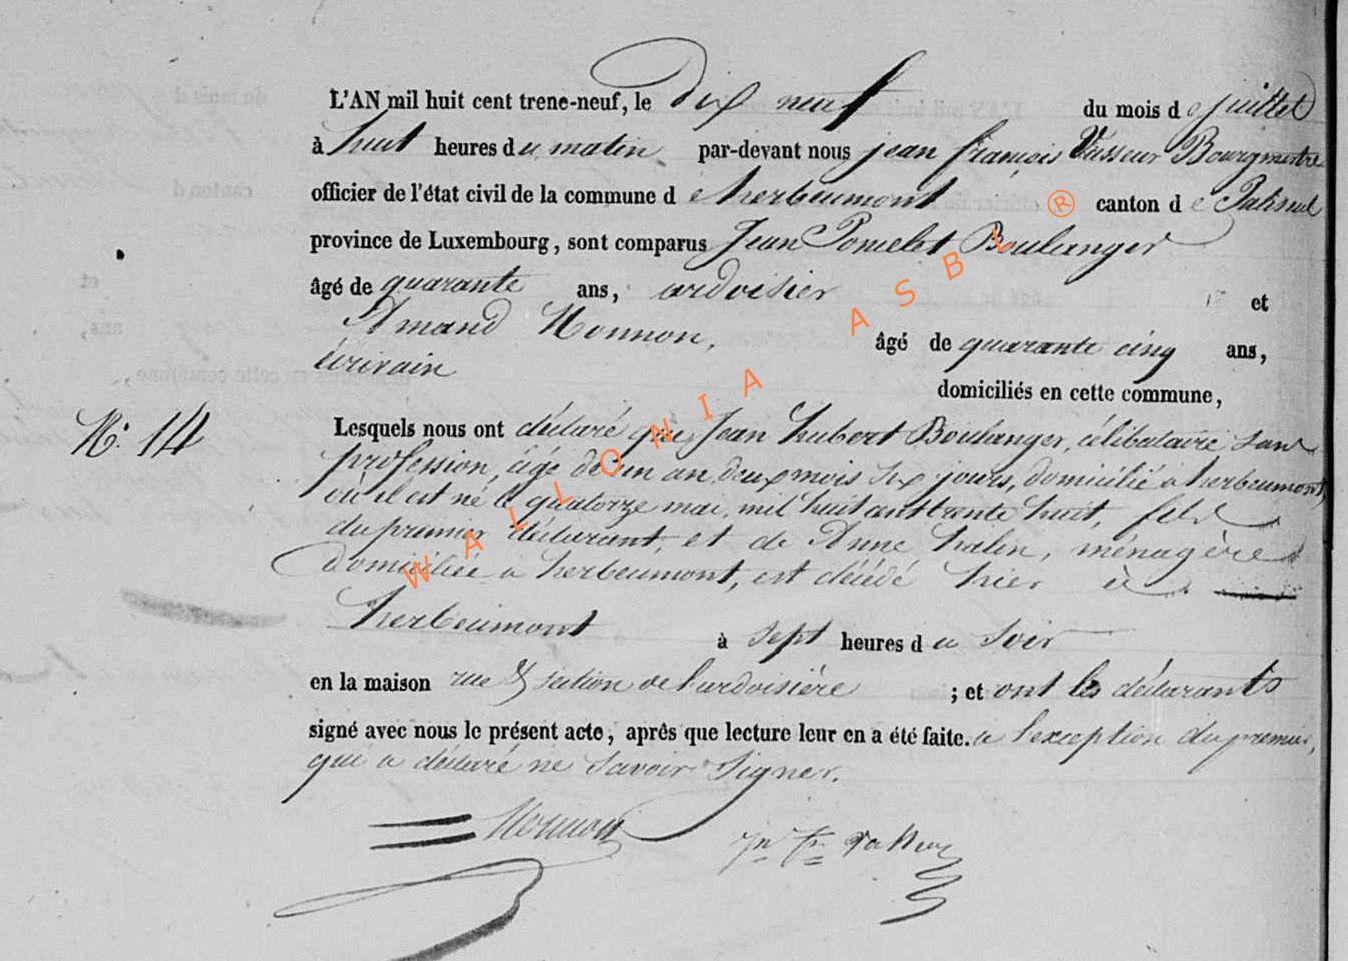 L'AN mil huit cent trene-neuf, le dix neuf du mois de juillet
à huit heures du matin par-devant nous jean françois Vasseur Bourgmestre
officier de l'état civil de la commune de herbeumont canton de Paliseul
province de Luxembourg, sont comparus Jean Poncelet Boulanger
âgé de quarante ans, ardoisier et
Amand Monnon, âgé de quarante cinq ans,
écrivain domiciliés en cette commune,
N.° 14
Lesquels nous ont déclaré que Jean hubert Boulanger, célibataire sans
profession, âgé de un an, deux mois six jours, domicilié à herbeumont,
où il est né le quatorze mai, mil huit cent trente huit, fils
du premier déclarant, et de Anne halin, ménagère
domiciliée à herbeumont, est décédé hier à
herbeumont à sept heures du soir
en la maison rue & section de l'ardoisière ; et ont les déclarants
signé avec nous le présent acte, après que lecture leur en a été faite. a l'exception du premier,
qui a déclaré ne savoir signer.
Monnon Jn fr Vasseur
WALLONIA ASBL ®